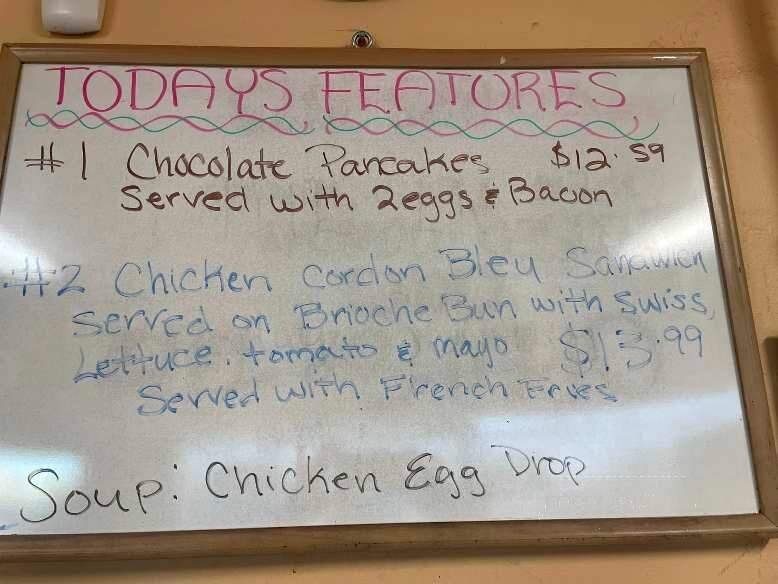 TODAYS FEATURES
#1 Chocolate Pancakes $12.59
Served with 2eggs & Bacon
#2 Chicken Cordon Bleu Sandwich
Served on Brioche Bun with Swiss,
Lettuce, tomato & mayo $13.99
Served with French Fries
Soup: Chicken Egg Drop